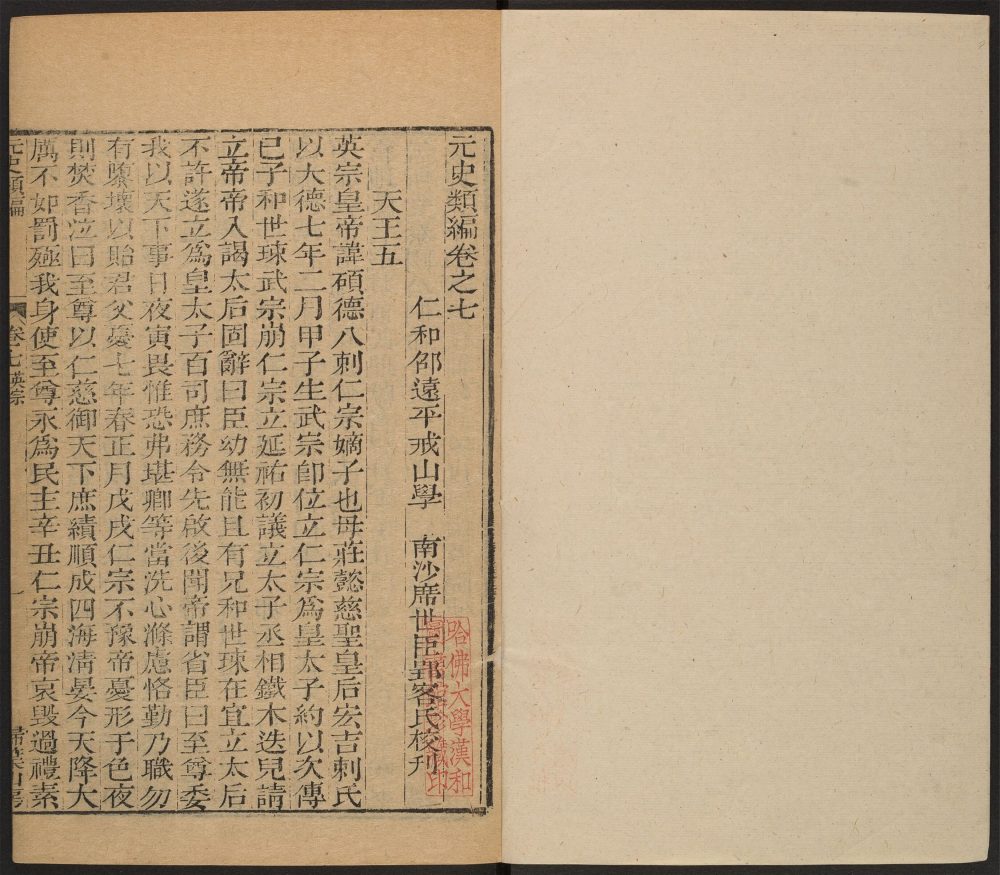 元史類編卷之七
仁和邵遠平戒山學 南沙席世臣郢客氏校刊
天王五
英宗皇帝諱碩德八剌仁宗嫡子也母莊懿慈聖皇后宏吉剌氏
以大德七年二月甲子生武宗卽位立仁宗爲皇太子約以次傳
己子和世㻋武宗崩仁宗立延祐初議立太子丞相鐵木迭兒請
立帝帝入謁太后固辭曰臣幼無能且有兄和世㻋在宜立太后
不許遂立爲皇太子百司庶務令先啟後聞帝謂省臣曰至尊委
我以天下事日夜寅畏惟恐弗堪卿等當洗心滌慮恪勤乃職勿
有隳壞以貽君父憂七年春正月戊戌仁宗不豫帝憂形于色夜
則焚香泣曰至尊以仁慈御天下庶績順成四海淸晏今天降大
厲不如罰殛我身使至尊永爲民主辛丑仁宗崩帝哀毀過禮素
元史類編 卷七 英宗 一 掃葉山房
哈佛大學漢和
圖書館珍藏印